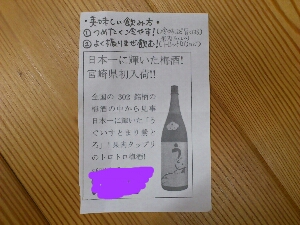 ・美味しい飲み方・
①つめたく冷やす!
②よく振りまぜ飲む!
日本一に輝いた梅酒!
宮崎県初入荷!!
全国の302銘柄の
梅酒の中から見事
日本一に輝いた「う
ぐいすとまり鶯と
ろ」!果肉タップリ
のトロトロ梅酒!